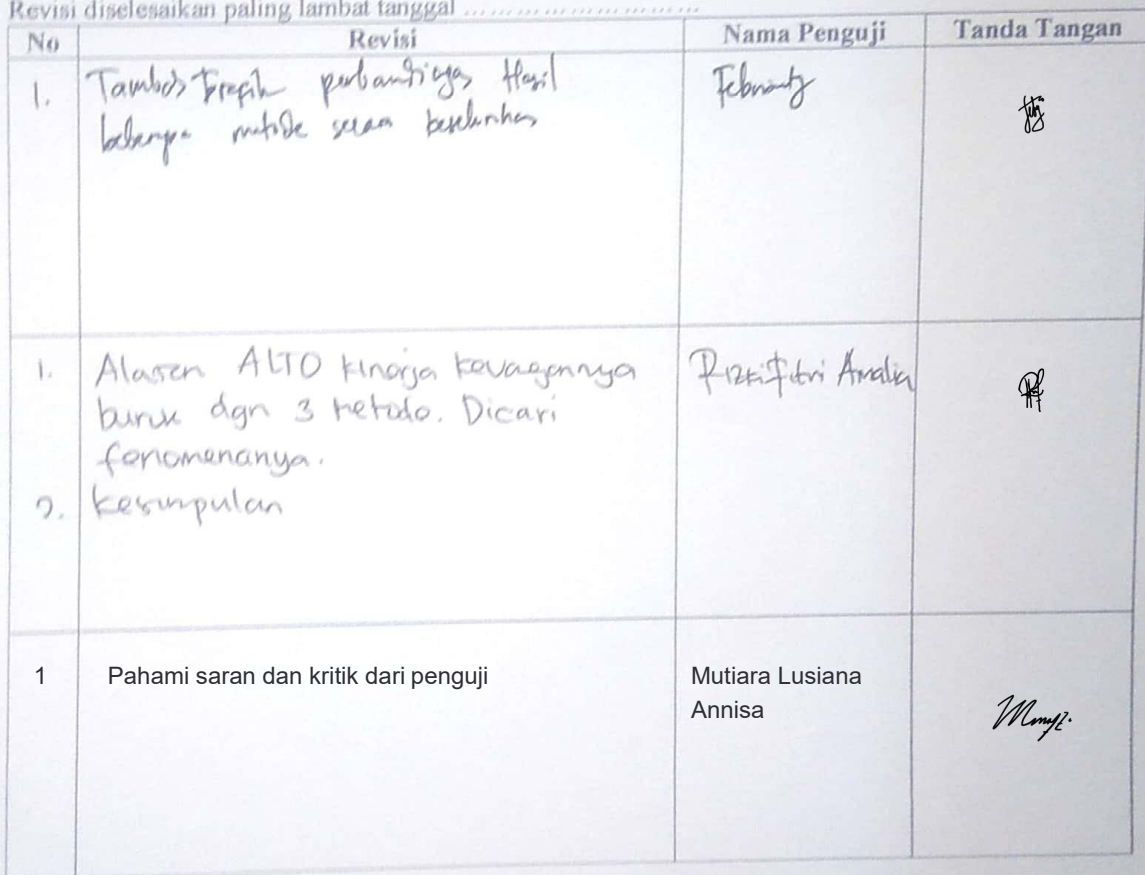 Revisi diselesaikan paling lambat tanggal ..............................
No Revisi Nama Penguji Tanda Tangan
1. Tambah Grafik perbandingan Hasil Februanty
beberapa metode secara keseluruhan
1. Alasan ALTO kinerja keuagannya Rizki Fitri Amalia
buruk dgn 3 metode. Dicari
fenomenanya.
2. Kesimpulan
1 Pahami saran dan kritik dari penguji Mutiara Lusiana
Annisa